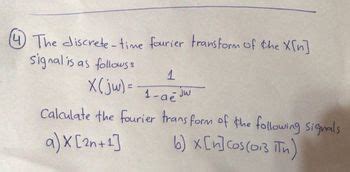 4 The discrete-time fourier transform of the X[n]
signal is as follows:
X(jw) = 1 / 1 - ae^-jw
Calculate the fourier transform of the following signals
a) X[2n+1] b) X[n] cos(0.3 πn)